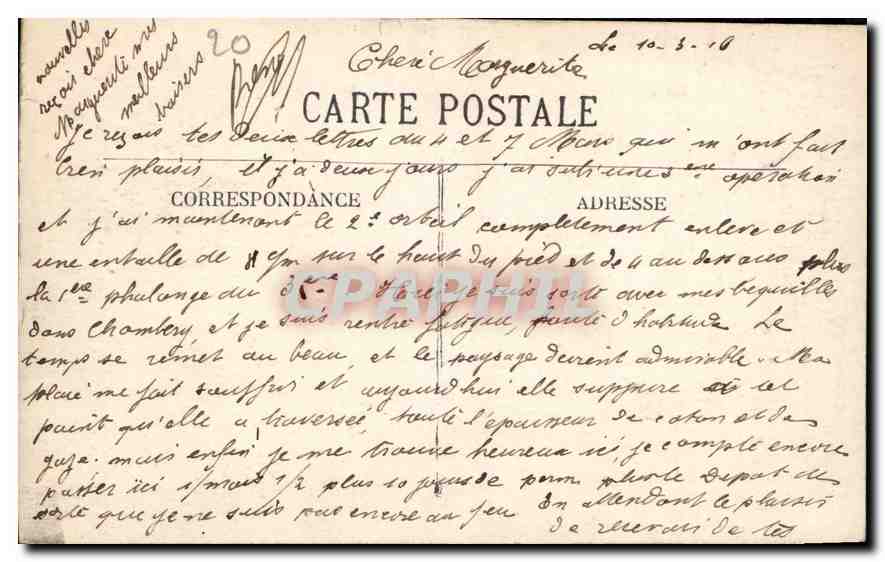 Le 10-3-16
Cheré Marguerite
CARTE POSTALE
Je reçois tes deux lettres du 4 et 7 Mars qui m'ont fait
bien plaisir, il y a deux jours j'ai subi une operation
CORRESPONDANCE
ADRESSE
et j'ai maintenant le 2e orteil completement enlevé et
une entaille de 8 c/m sur le haut du pied et de 4 au dessous plus
la 1ere phalange du 3eme Hier je suis sorti avec mes bequilles
dans Chambery et je suis rentré fatigué, faute d'habitude. Le
temps se remet au beau et le paysage devient admirable. Ma
plaie me fait souffrir et aujourd'hui elle suppure à tel
point qu'elle a traversée toute l'epaisseur de coton et de
gaze. mais enfin je me trouve heureux ici, je compte encore
passer ici 1 mois 1/2 plus 10 jours de perm plus le depot de
sorte que je ne suis pas encore au feu En attendant le plaisir
de recevoir de tes
nouvelles
reçois chere
Marguerite mes
meilleurs
baisers
20
CPAPHIL